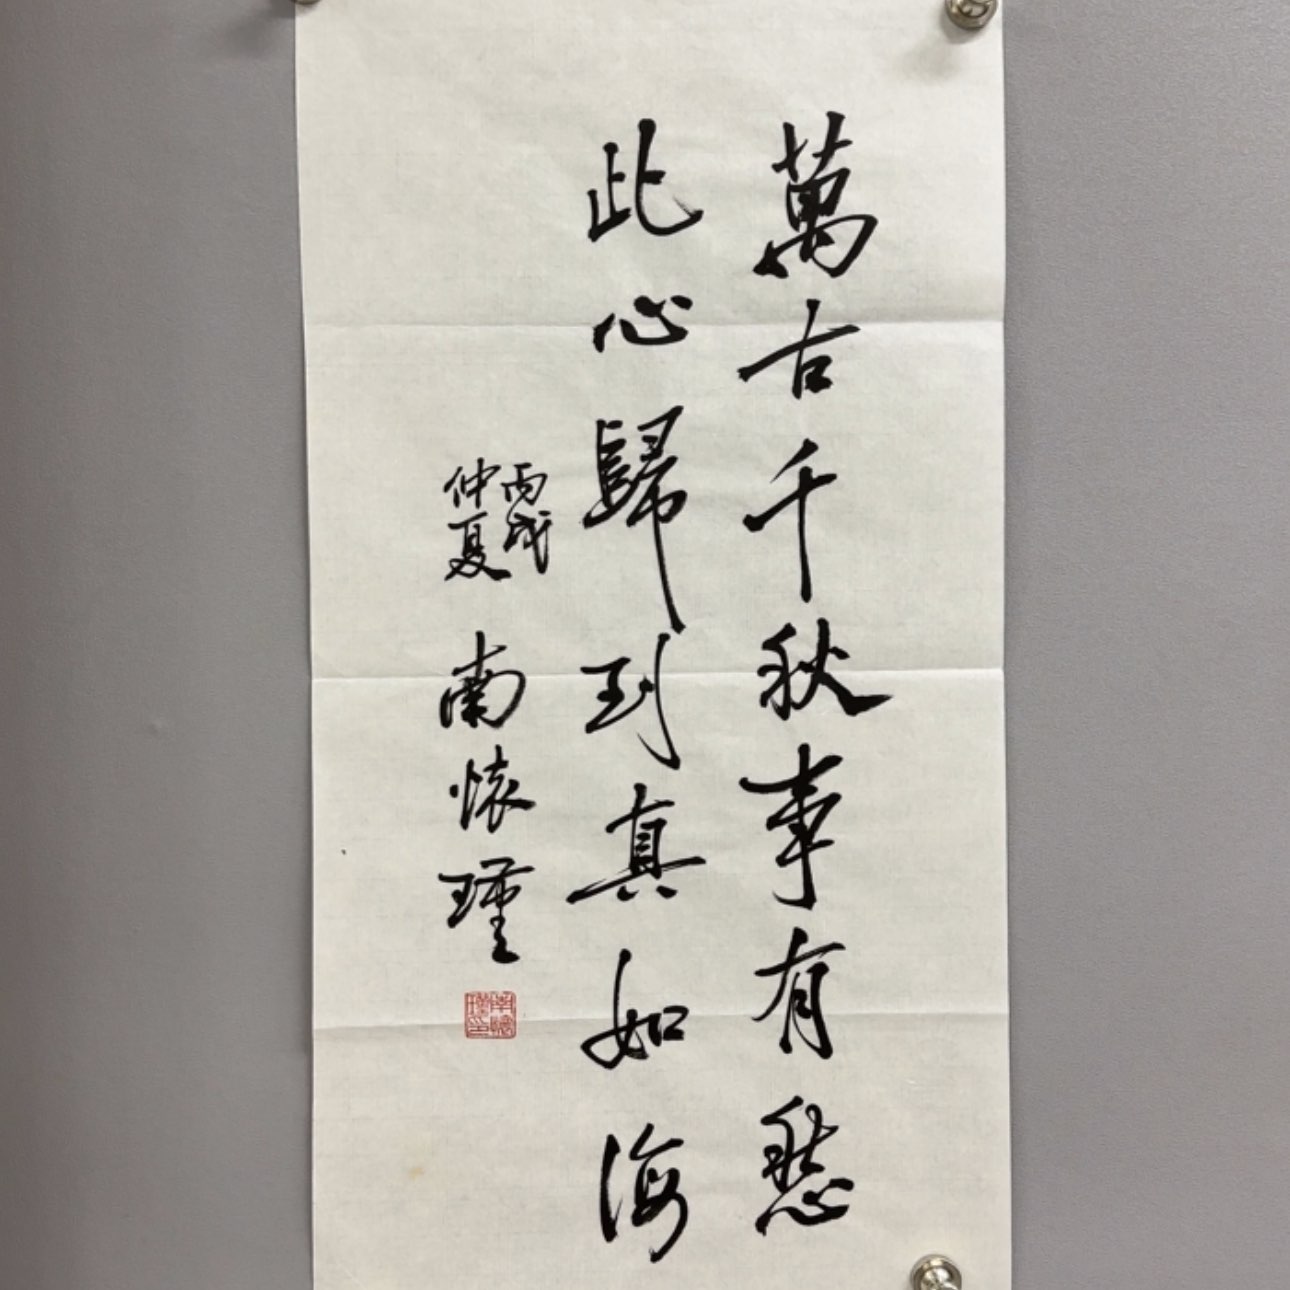 萬古千秋事有愁
此心歸到真如海
丙戌
仲夏
南懷瑾
南懷瑾印